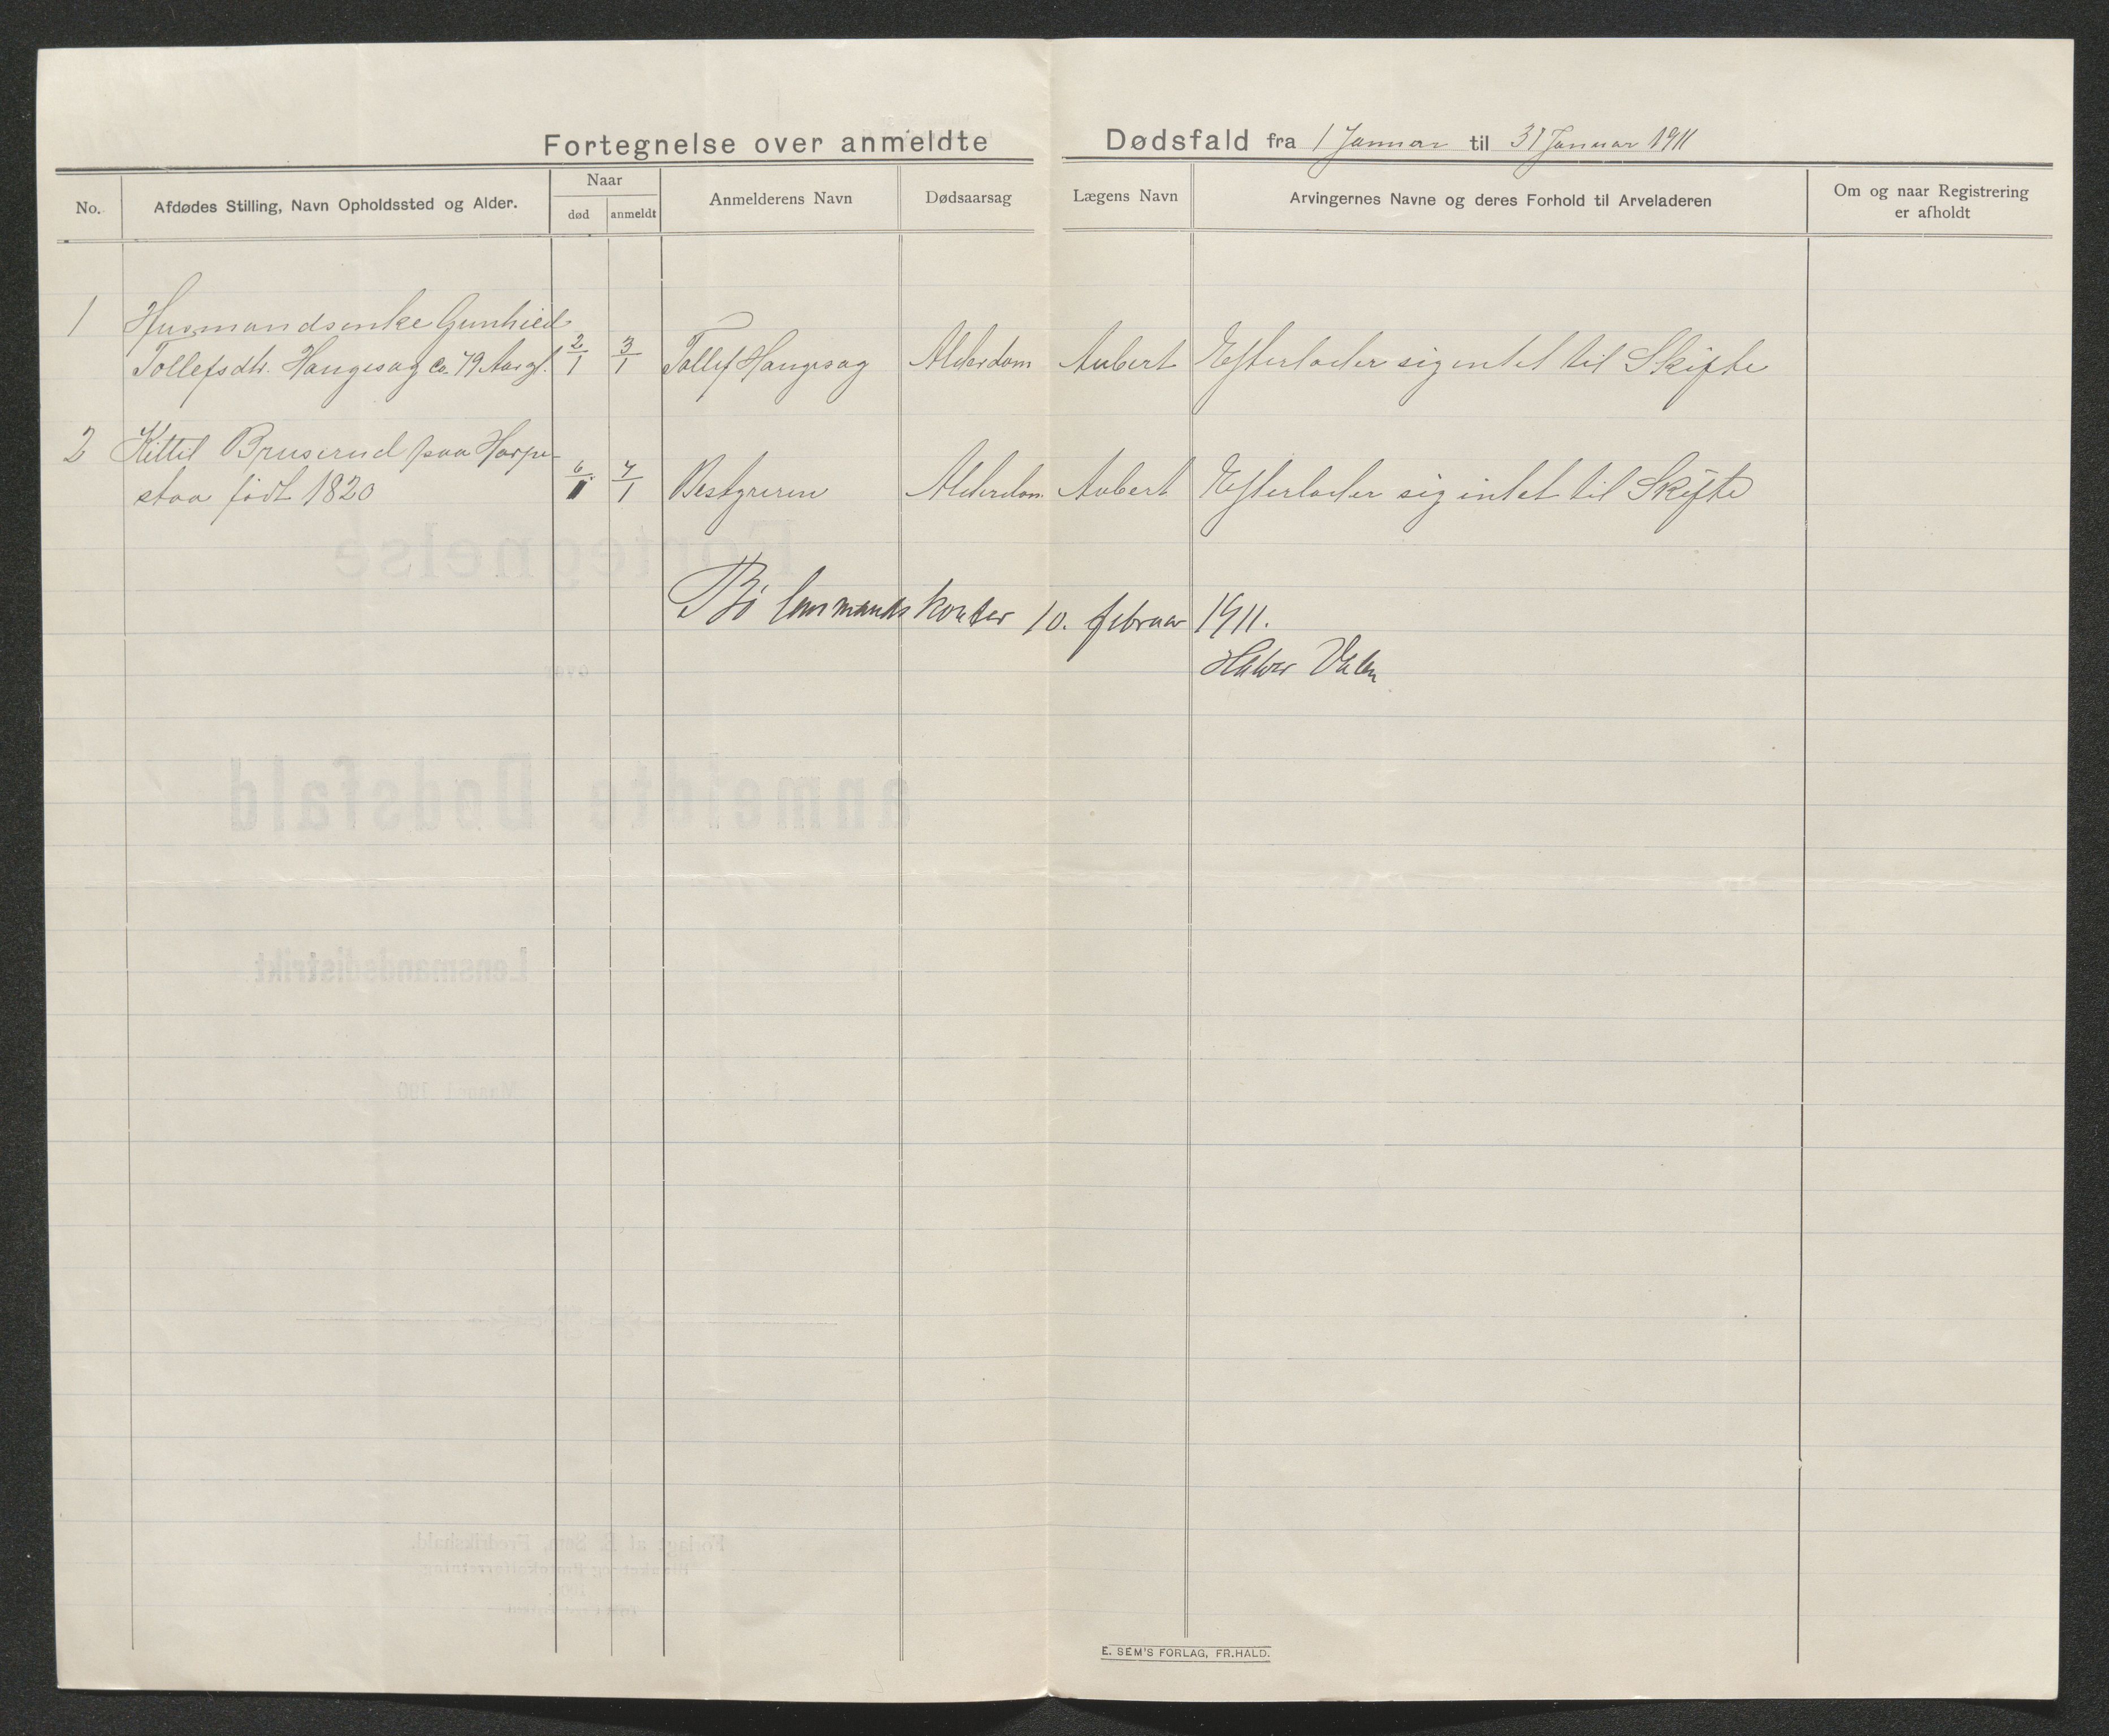 Fortegnelse over anmeldte Dødsfald fra 1 Januar til 31 Januar 1911
No.
Afdødes Stilling, Navn Opholdssted og Alder.
Naar
død
anmeldt
Anmelderens Navn
Dødsaarsag
Lægens Navn
Arvingernes Navne og deres Forhold til Arveladeren
Om og naar Registrering
er afholdt
1 Husmandsenke Gunhild
Tollefsdtr. Haugesag ca 79 Aar gl. 2/1 3/1 Tollef Haugesag Alderdom Aubert Efterlader sig intet til Skifte
2 Kittil Bruserud paa Harpe-
staa født 1820 6/1 7/1 Bestyreren Alderdom Aubert Efterlader sig intet til Skifte
Bø lensmandskontor 10. februar 1911.
Halvor Valen
Fortegnelse
over
anmeldte Dødsfald
Lensmandsdistrikt
i Maaned 190
Forlagt af E. Sem, Fredrikshald.
E. SEM'S FORLAG, FR.HALD.